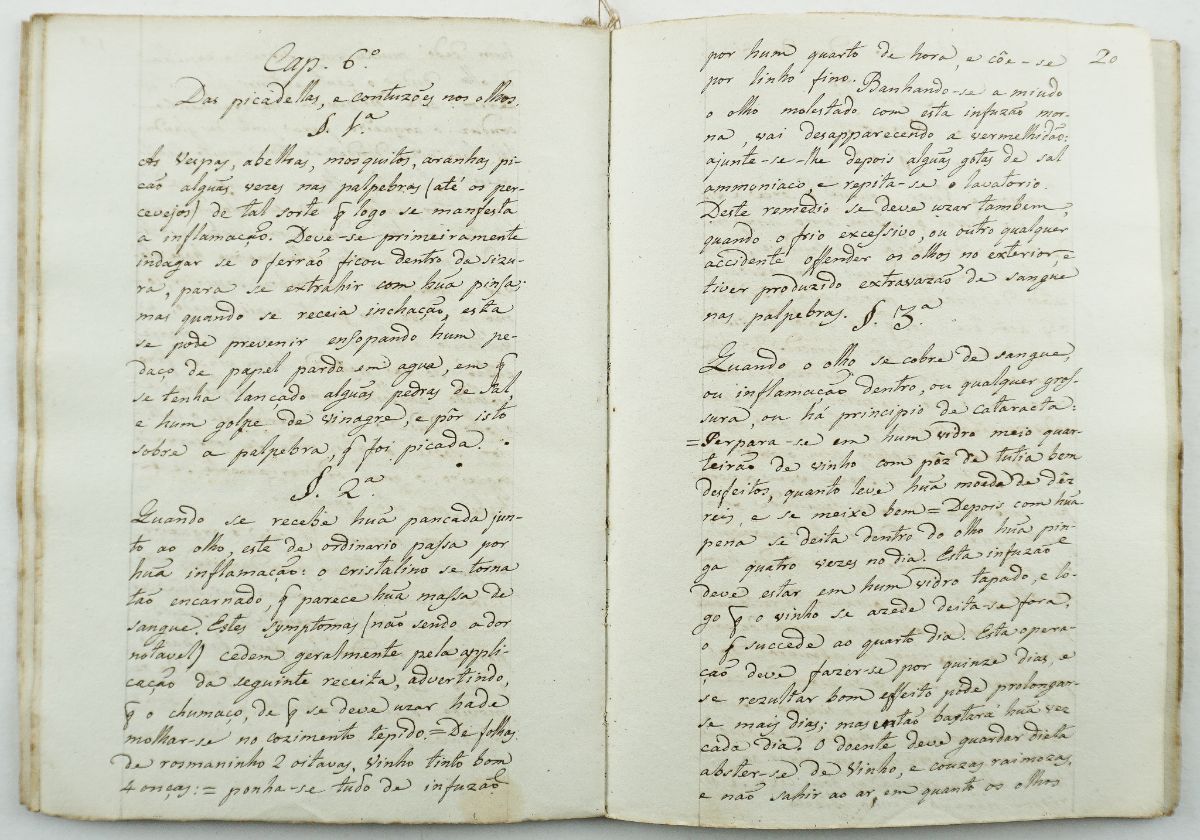 Cap. 6.º
Das picadellas, e contuzões nos olhos.
§. 1.ª
As vespas, abelhas, mosquitos, aranhas pi-
cão alguãs vezes nas palpebras (até os per-
cevejos) de tal sorte q̃ logo se manifesta
a inflamação. Deve-se primeiramente
indagar se o ferrão ficou dentro da sizu-
ra, para se extrahir com huã pinsa;
mas quando se receia inchação, esta
se pode prevenir ensopando hum pe-
daço de papel pardo em agua, em q̃
se tenha lançado alguãs pedras de sal,
e hum golpe de vinagre, e pôr isto
sobre a palpebra, q̃ foi picada.
§. 2.ª
Quando se recebe huã pancada jun-
to ao olho, este de ordinario passa por
huã inflamação: o cristalino se torna
tão encarnado, q̃ parece huã massa de
sangue. Estes symptomas (não sendo a dor
notavel) cedem geralmente pela appli-
cação da seguinte receita, advertindo,
q̃ o chumaço, de q̃ se deve uzar hade
molhar-se no cozimento tepido. = De folhas
de rosmaninho 2 oitavas, vinho tinto bom
4 onças: = ponha-se tudo de infuzaõ
20
por hum quarto de hora, e côe-se
por linho fino. Banhando-se a miudo
o olho molestado com esta infuzão mor-
na, vai desapparecendo a vermelhidão:
ajunte-se-lhe depois alguãs gotas de sal
ammoniaco, e repita-se o lavatorio.
Deste remedio se deve uzar tambem,
quando o frio excessivo, ou outro qualquer
accidente offender os olhos no exterior, e
tiver produzido extravazão de sangue
nas palpebras. §. 3.ª
Quando o olho se cobre de sangue,
ou inflamação dentro, ou qualquer gros-
sura, ou há principio de cataracta:
= Perpara-se em hum vidro meio quar-
teirão de vinho com pôz de tutia bem
desfeitos, quanto leve huã moeda de dêz
reis, e se meixe bem = Depois com huã
pena se deita dentro do olho huã pin-
ga quatro vezes no dia. Esta infuzaõ
deve estar em hum vidro tapado, e lo-
go q̃ o vinho se azede deita-se fora,
o q̃ succede ao quarto dia. Esta opera-
ção deve fazer-se por quinze dias, e
se rezultar bom effeito pode prolongar-
se mais dias; mas então bastará huã vez
cada dia. O doente deve guardar dieta
abster-se de vinho, e couzas raimozas,
e não sahir ao ar, em quanto os olhos